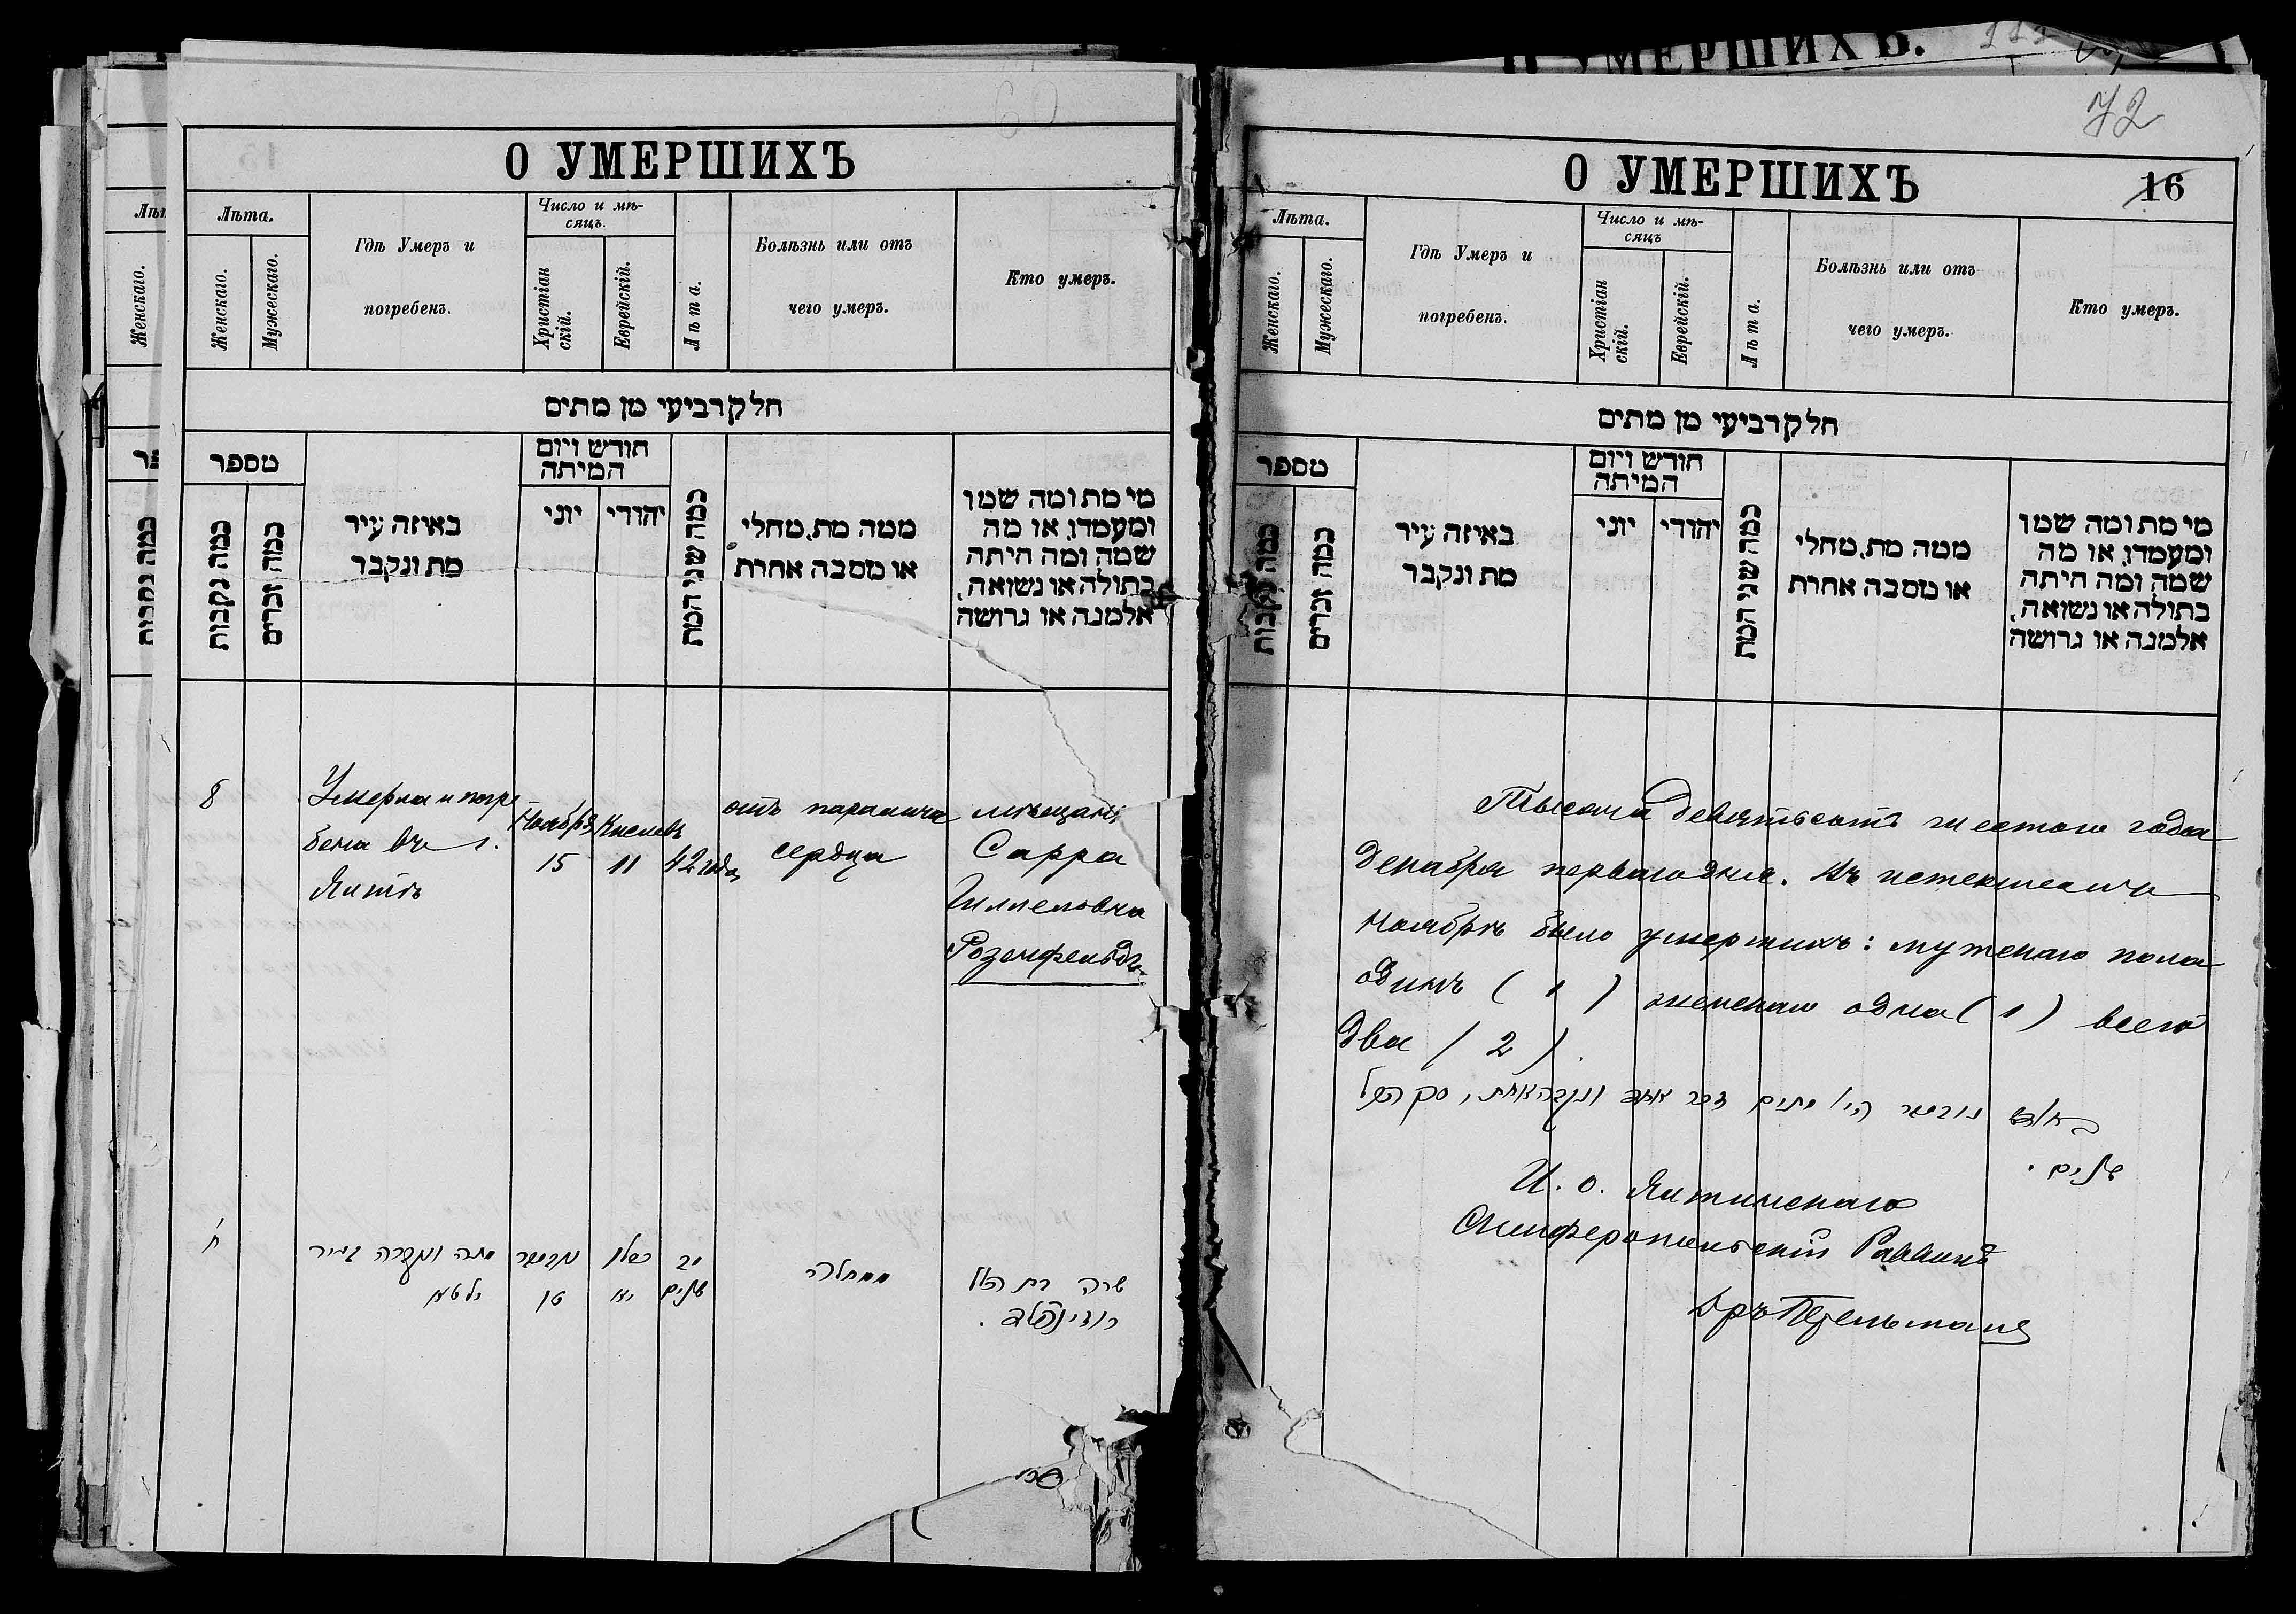 О УМЕРШИХЪ.
72
О УМЕРШИХЪ
Лѣта.
Женскаго.
Мужескаго.
Гдѣ Умеръ и
погребенъ.
Число и мѣ-
сяцъ.
Христіан
скій.
Еврейскій.
Лѣта.
Болѣзнь или отъ
чего умеръ.
Кто умеръ.
חלק רביעי מן מתים
מספר
כמה נקבות
כמה זכרים
באיזה עיר
מת ונקבר
חודש ויום
המיתה
יוני
יהודי
כמה שני המת
ממה מת, מחלי
או מסבה אחרת
מי מת ומה שמו
ומעמדו, או מה
שמה ומה היתה
בתולה או נשואה,
אלמנה או גרושה
8
Умерла и погре
бена въ г.
Ялтѣ
Ноября
15
Кислевъ
11
42 года
отъ паралича
сердца
мѣщанк
Сарра
Розенфельдъ
ח
מתה ונקברה בעיר
יאלטא
נאיאבער
טו
כסלו
יא
מב
שנים
שרה בת
ראזינפעלד.
О УМЕРШИХЪ
16
Лѣта.
Женскаго.
Мужескаго.
Гдѣ Умеръ и
погребенъ.
Число и мѣ-
сяцъ
Христіан
скій.
Еврейскій.
Лѣта.
Болѣзнь или отъ
чего умеръ.
Кто умеръ.
חלק רביעי מן מתים
מספר
כמה נקבות
כמה זכרים
באיזה עיר
מת ונקבר
חודש ויום
המיתה
יוני
יהודי
כמה שני המת
ממה מת, מחלי
או מסבה אחרת
מי מת ומה שמו
ומעמדו, או מה
שמה ומה היתה
בתולה או נשואה,
אלמנה או גרושה
Тысяча девятьсотъ шестого года
декабря перваго дня. Въ истекшемъ
ноябрѣ было умершихъ: мужскаго пола
одинъ (1) женскаго одна (1) всего
два (2).
היו מתים זכר אחד ונקבה אחת, סך הכל
שנים.
И. о. Ялтинскаго
Симферопольскій Раввинъ